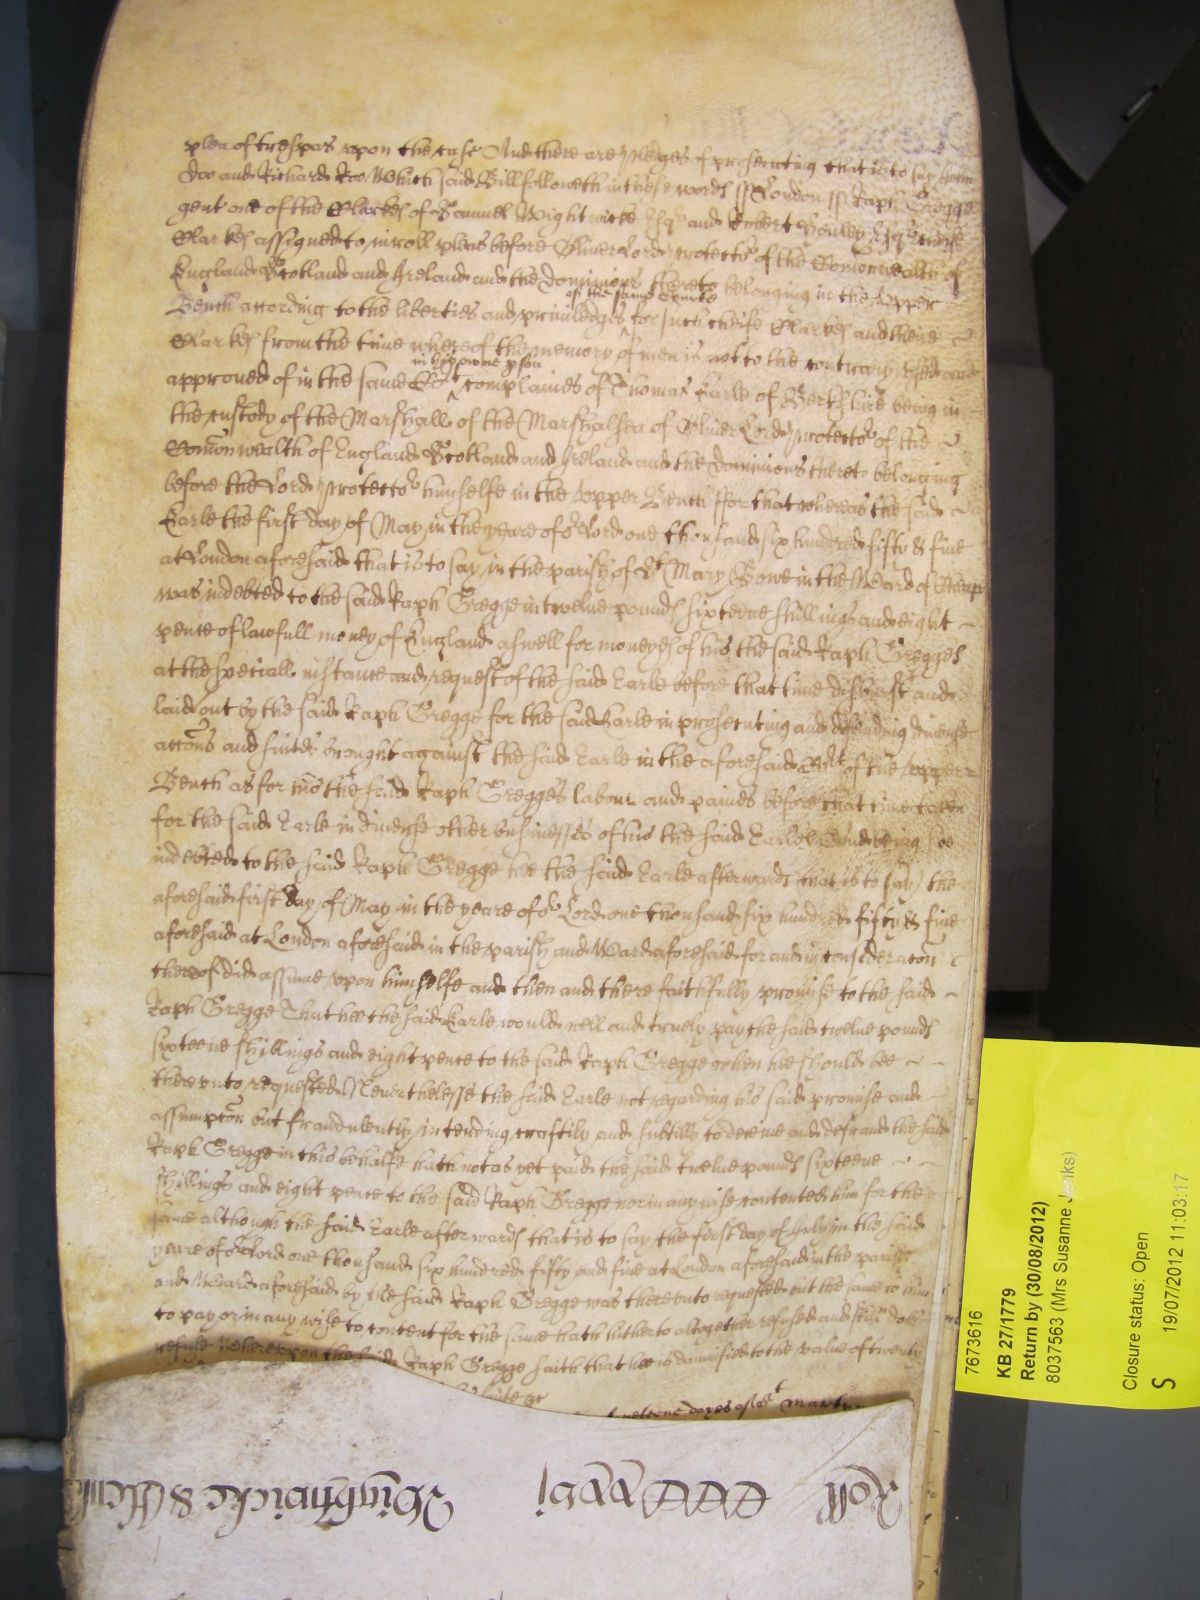 plea of trespas upon the case And there are pledges of prosecuting that is to say John
Doo and Richard Roo Which said Bill followeth in these words ss London ss Raph Gregge
gent one of the Clarkes of Samuel Wightwicke Esqr and Robert Henley Esqr cheife
Clarkes assigned to inroll pleas before Oliver Lord protector of the Comonwealth of
England Scotland and Ireland and the Dominions thereto belonging in the Upper
of the same Courte
Bench according to the liberties and priviledges for such cheife Clarkes and theire
Clarkes from the time whereof the memory of men is not to the contrary used and
in his owne pson
approved of in the same Cort complaines of Thomas Earle of Berkshire being in
the custody of the Marshall of the Marshalsea of Oliver Lord protector of the
Comonwealth of England Scotland and Ireland and the Dominions thereto belonging
before the Lord protector himselfe in the Upper Bench ffor that whereas the said
Earle the first day of May in the yeare of or Lord one thousand six hundred fifty & five
at London aforesaid that is to say in the parish of St Mary Bowe in the Ward of Cheap
was indebted to the said Raph Gregge in twelve pounds sixteene shillings and eight
pence of lawfull money of England aswell for moneyes of his the said Raph Gregges
at the speciall instance and request of the said Earle before that time disburst and
laid out by the said Raph Gregge for the said Earle in prosecuting and defending diverse
accons and suites brought against the said Earle in the aforesaid Cort of the upper
Bench as for his the said Raph Gregges labour and paines before that time taken
for the said Earle in diverse other businesses of his the said Earles And being soe
indebted to the said Raph Gregge hee the said Earle afterwards that is to say the
aforesaid first day of May in the yeare of or Lord one thousand six hundred fifty & five
aforesaid at London aforesaid in the parish and Ward aforesaid for and in consideracon
thereof did assume upon himselfe and then and there faithfully promise to the said
Raph Gregge That hee the said Earle would well and truely pay the said twelve pounds
sixteene shillings and eight pence to the said Raph Gregge when hee should bee
thereunto requested Neverthelesse the said Earle not regarding his said promise and
assumpcon but fraudulently intending craftily and subtilly to deceive and defraud the said
Raph Gregge in this behalfe hath not as yet paid the said twelve pounds sixteene
shillings and eight pence to the said Raph Gregge nor in any wise contented him for the
same although the said Earle afterwards that is to say the first day of July in the said
yeare of or Lord one thousand six hundred fifty and five at London aforesaid in the parish
and Ward aforesaid by the said Raph Gregge was thereunto requested but the same to him
to pay or in any wise to content for the same hath hitherto altogether refused and still doth
refuse Whereupon the said Raph Gregge saith that hee is damnified to the value of twenty
suite &c
fifteene dayes of St Martyn
Roll
Wightwicke &
7673616
KB 27/1779
Return by (30/08/2012)
8037563 (Mrs Susanne Jenks)
Closure status: Open
S 19/07/2012 11:03:17